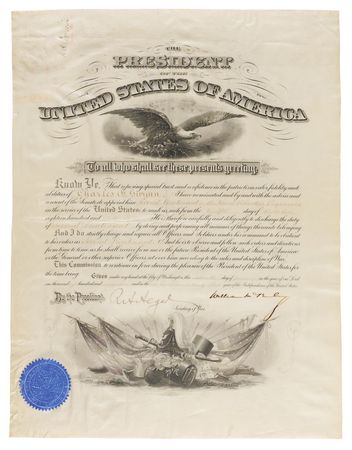 THE
PRESIDENT
OF THE
UNITED STATES OF AMERICA
To all who shall see these presents greeting:
Know Ye, That reposing special trust and confidence in the patriotism, valor, fidelity and
abilities of Charles I have nominated and by and with the advice and
consent of the Senate do appoint him
in the service of the United States: to rank as such from the day of
eighteen hundred and He is therefore carefully and diligently to discharge the
duty of by doing and performing all manner of things thereunto belonging.
And I do strictly charge and require all Officers and Soldiers under his command to be obedient
to his orders as And he is to observe and follow such orders and directions
from time to time as he shall receive from me or the future President of the United States of America
or the General or other superior Officers set over him according to the rules and discipline of War.
This Commission to continue in force during the pleasure of the President of the United States for
the time being.
Given under my hand at the City of Washington this day of in the year of our Lord
one thousand hundred and and in the year of the Independence of the United States.
By the President:
William McKinley
R. A. Alger
Secretary of War.